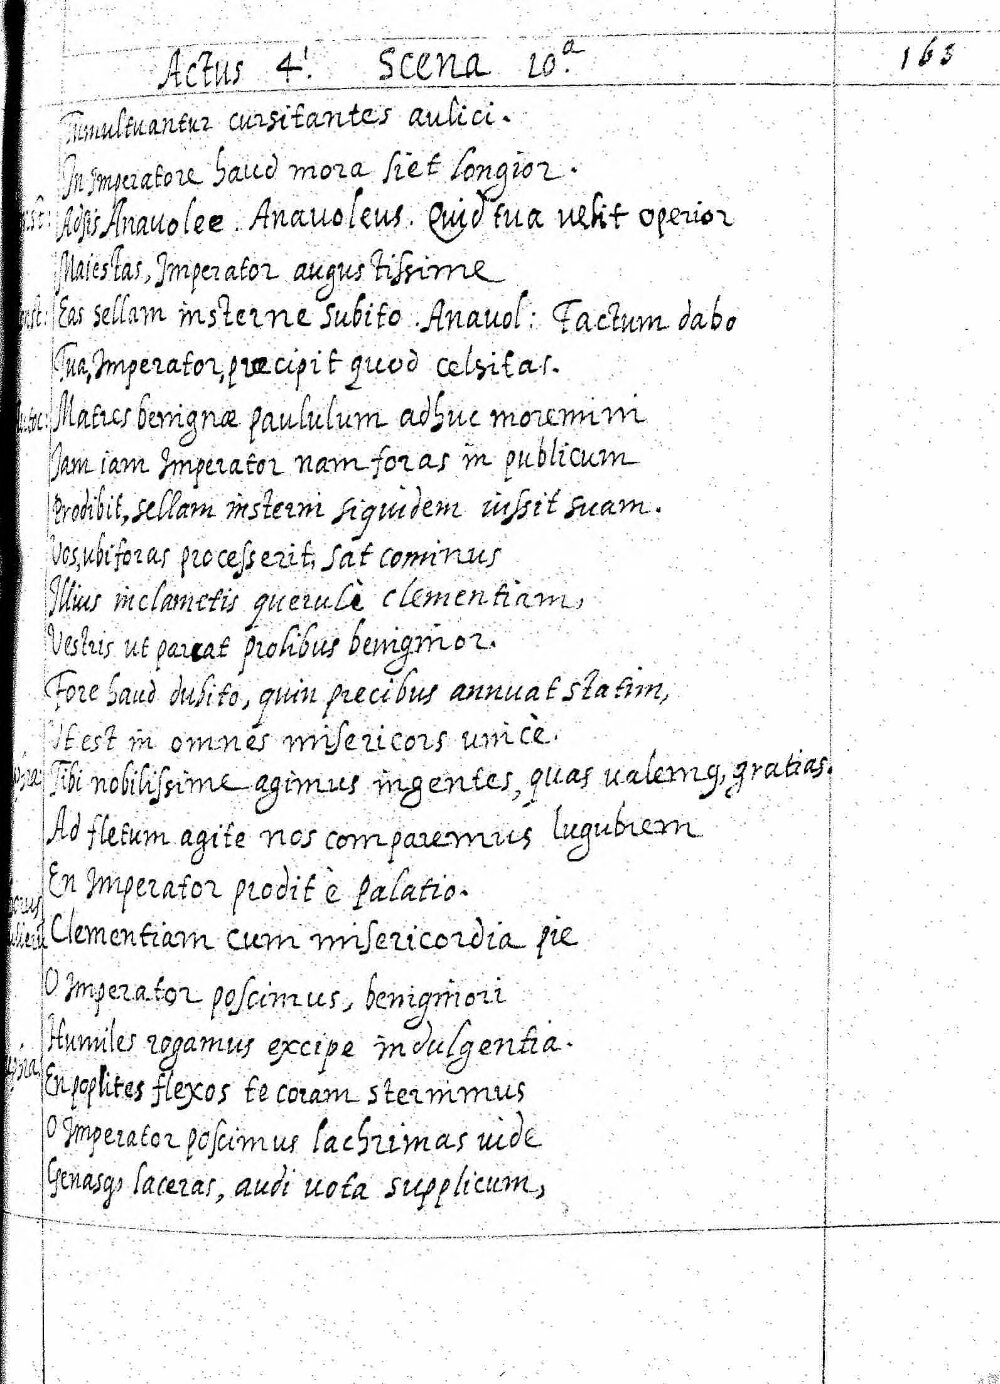 Actus 4.ⁱ Scena 10.ª 163
Tumultuantur cursitantes aulici.
In Imperatore haud mora siet longior.
Adsis Anauolee. Anauoleus. Quid tua uelit operior
Maiestas, Imperator augustissime
Eas sellam insterne subito. Anauol: Factum dabo
Tua, Imperator, præcipit quod celsitas.
Matres benignæ paululum adhuc moremini
Iam iam Imperator nam foras in publicum
Prodibit, sellam insterni siquidem iussit suam.
Vos, ubi foras processerit, sat cominus
Illius inclametis querulè clementiam,
Vestris ut parcat prolibus benignior.
Fore haud dubito, quin precibus annuat statim,
Ut est in omnes misericors unicè.
Tibi nobilissime agimus ingentes, quas ualemq, gratias.
Ad fletum agite nos comparemus lugubrem
En Imperator prodit è palatio.
Clementiam cum misericordia pie
O Imperator poscimus, benigniori
Humiles rogamus excipe indulgentia.
En poplites flexos te coram sternimus
O Imperator poscimus lachrimas uide
Genasq, laceras, audi uota supplicum,